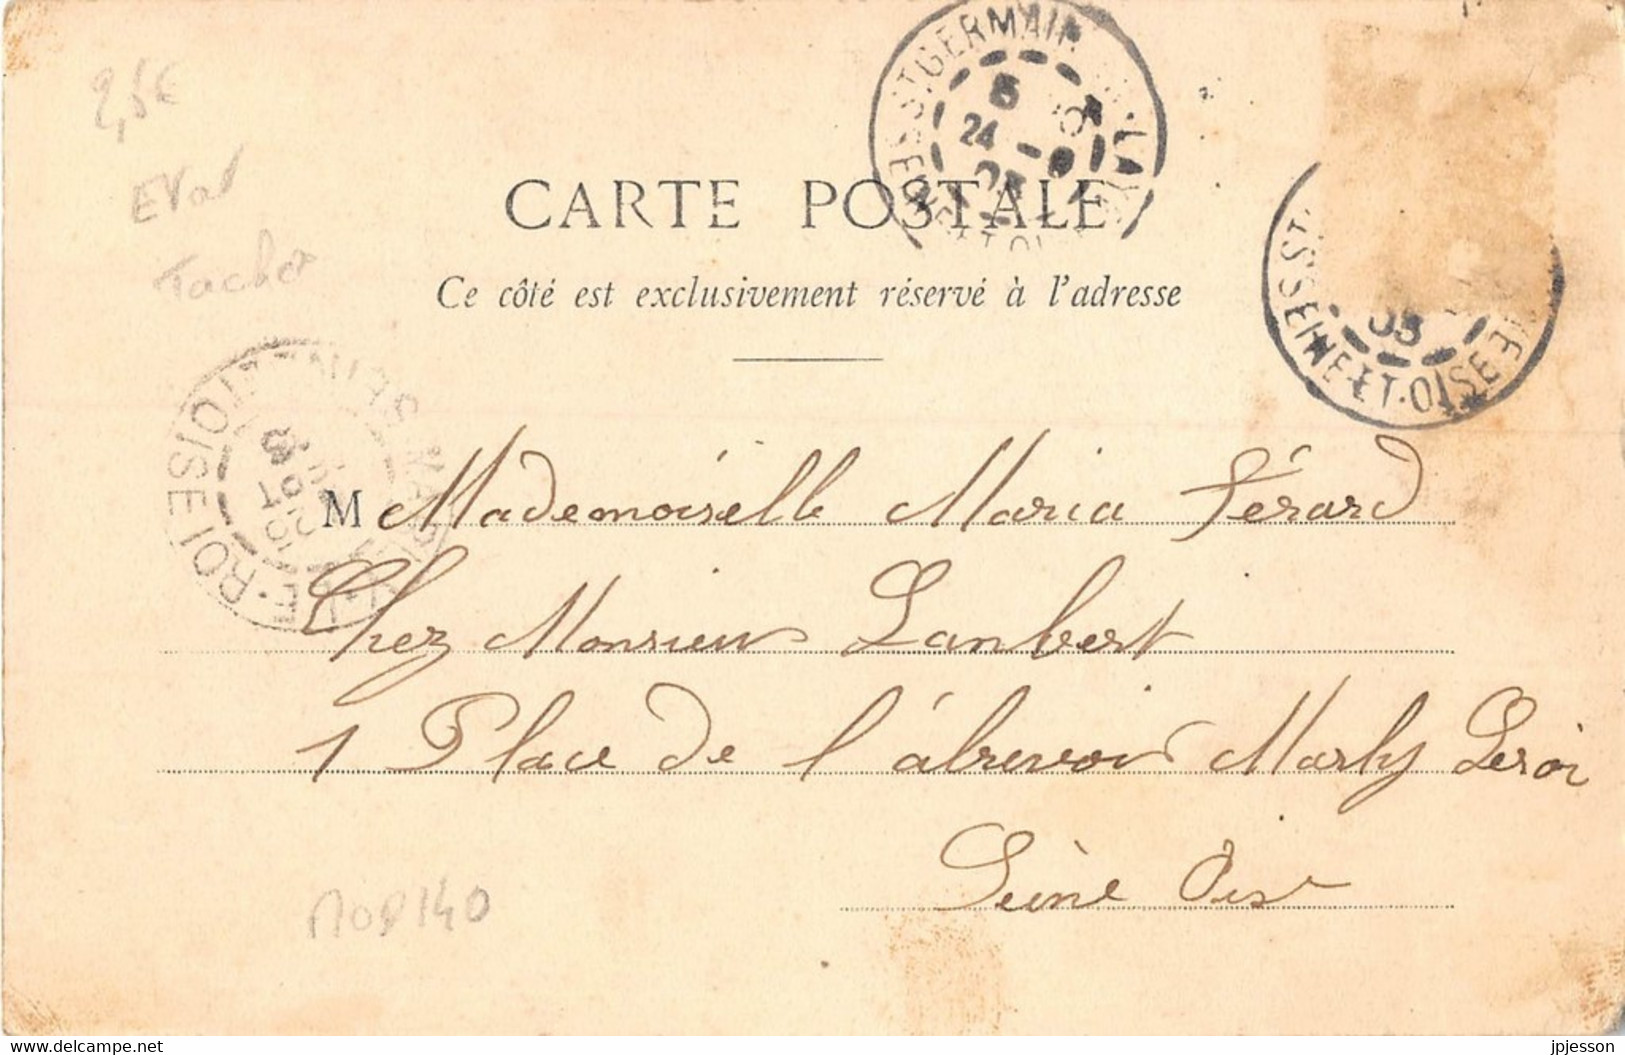 2,5€
Etat
Tachée
CARTE POSTALE
Ce côté est exclusivement réservé à l'adresse
ST GERMAIN EN LAYE
SEINE ET OISE
5
24 - 9
03
SEINE-ET-OISE
03
MARLY-LE-ROI
SEINE-ET-OISE
25
M Mademoiselle Maria Férard
Chez Monsieur Lambert
1 Place de l'ábrevoir Marly Leroi
Seine Oise
MOD140
www.delcampe.net
jpjesson